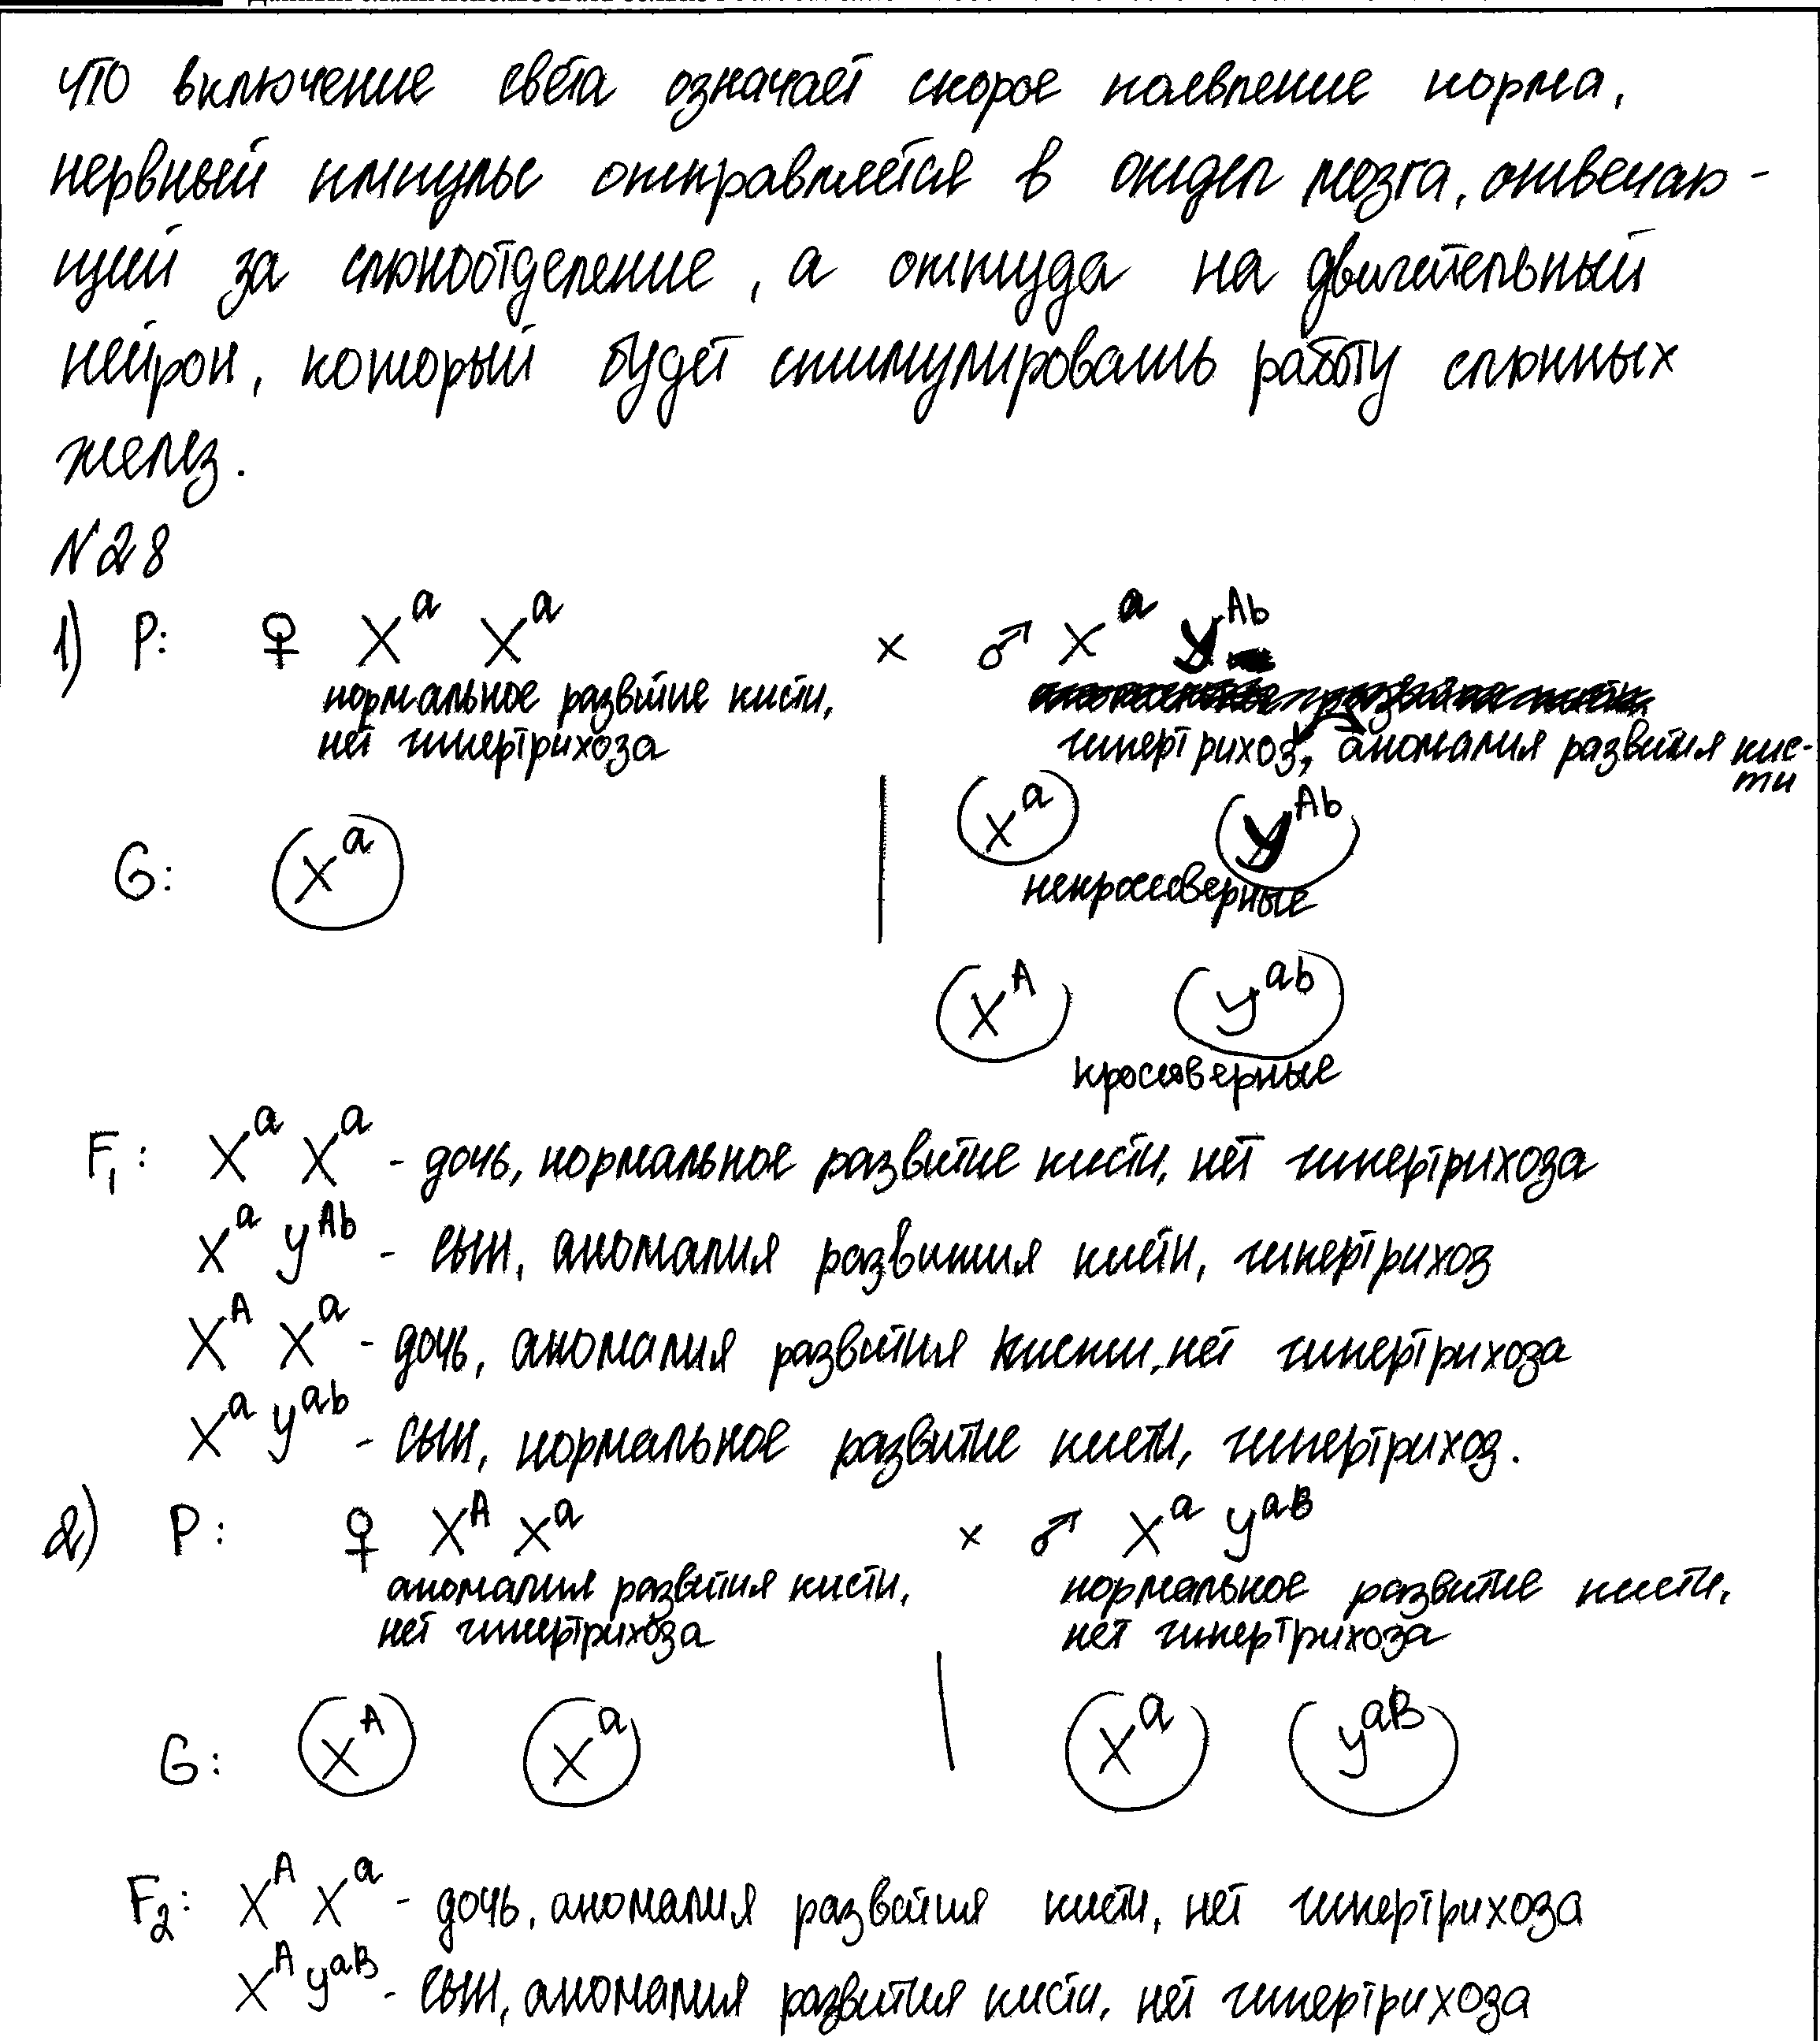 что включение света означает скорое появление корма,
нервный импульс отправляется в отдел мозга, отвечаю-
щий за слюноотделение, а оттуда на двигательный
нейрон, который будет стимулировать работу слюнных
желез.
N28
1) P: ♀ X^a X^a × ♂ X^a Y^Ab
нормальное развитие кисти,
нет гипертрихоза
гипертрихоз, аномалия развития кис-
ти
G: X^a | X^a Y^Ab
некроссоверные
X^A Y^ab
кроссоверные
F₁: X^a X^a - дочь, нормальное развитие кисти, нет гипертрихоза
X^a Y^Ab - сын, аномалия развития кисти, гипертрихоз
X^A X^a - дочь, аномалия развития кисти, нет гипертрихоза
X^a Y^ab - сын, нормальное развитие кисти, гипертрихоз.
2) P: ♀ X^A X^a × ♂ X^a Y^aB
аномалия развития кисти, нормальное развитие кисти,
нет гипертрихоза нет гипертрихоза
G: X^A X^a | X^a Y^aB
F₂: X^A X^a - дочь, аномалия развития кисти, нет гипертрихоза
X^A Y^aB - сын, аномалия развития кисти, нет гипертрихоза